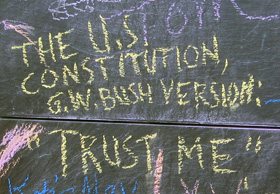 THE U.S.
CONSTITUTION,
G.W. BUSH VERSION:
"TRUST ME"